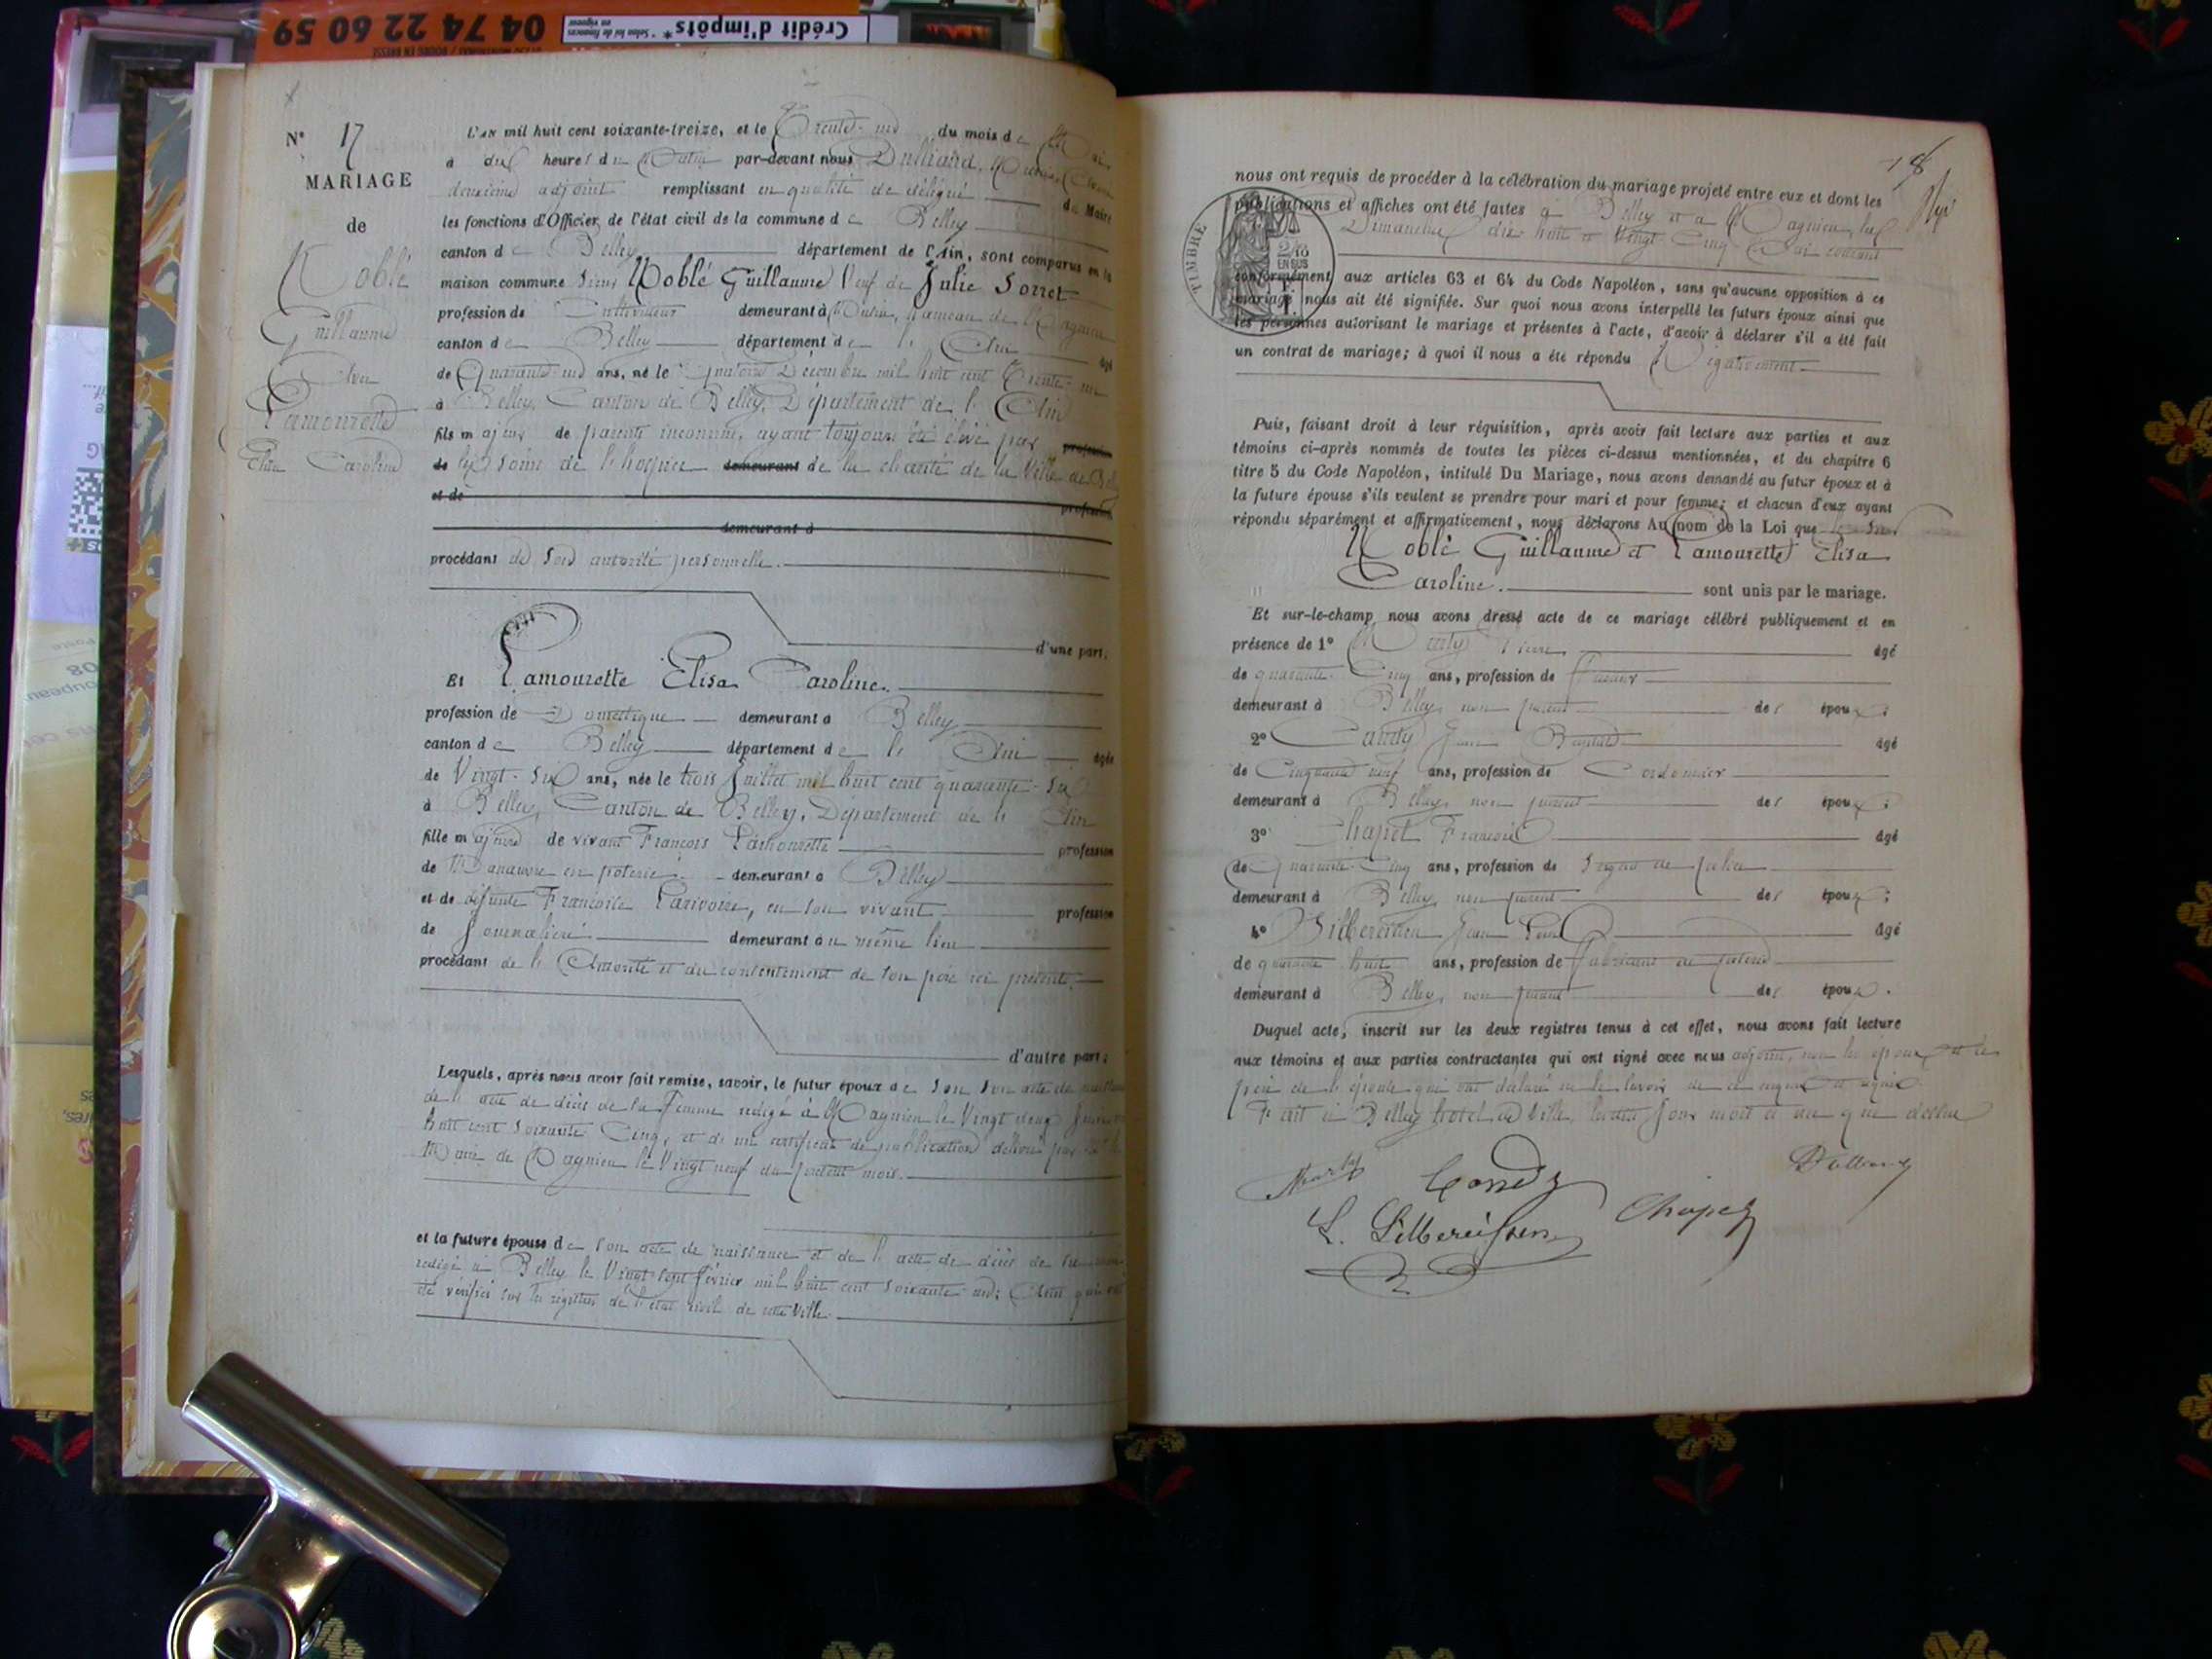 04 74 22 60 59
Crédit d'impôts*
N° 17
MARIAGE
de
Noblé
Guillaume
Avec
Lamourette
Elisa Caroline
L'an mil huit cent soixante-treize, et le Trente-un du mois de Mai
à dix heures du Matin par-devant nous Dulliard,
deuxième adjoint remplissant en qualité de délégué du Maire
les fonctions d'Officier de l'état civil de la commune de Belley
canton de Belley département de l'Ain, sont comparus en la
maison commune Sieur Noblé Guillaume Veuf de Julie Sorret
profession de Cultivateur demeurant à hameau de Magnieu
canton de Belley département de l'Ain âgé
de Quarante-un ans, né le Quatorze Décembre mil huit cent Trente-un
à Belley, Canton de Belley, Département de l'Ain
fils majeur de parents inconnus, ayant toujours été élevé par profession
de les soins de l'hospice demeurant de la charité de la Ville de Belley
et de profession
demeurant à
procédant de son autorité personnelle.
d'une part.
Et Lamourette Elisa Caroline.
profession de Domestique demeurant à Belley
canton de Belley département de l'Ain âgée
de Vingt-six ans, née le trois Juillet mil huit cent quarante-six
à Belley, Canton de Belley, Département de l'Ain
fille majeure de vivant François Lamourette profession
de Manœuvre en poterie demeurant à Belley
et de défunte Françoise Larivoire, en son vivant profession
de Journalière demeurant au même lieu
procédant de l'Autorité et du consentement de son père ici présent.
d'autre part:
Lesquels, après nous avoir fait remise, savoir, le futur époux de son acte de naissance
de l'acte de décès de sa femme rédigé à Magnieu le Vingt deux
huit cent soixante Cinq, et de un certificat de publication délivré par
Maire de Magnieu le Vingt neuf du présent mois.
et la future épouse de son acte de naissance et de l'acte de décès de sa mère
rédigé à Belley le Vingt sept février mil huit cent soixante
été vérifiés sur les registres de l'état civil de cette Ville.
18
nous ont requis de procéder à la célébration du mariage projeté entre eux et dont les
publications et affiches ont été faites à Belley et à Magnieu les
Dimanches dix huit et Vingt Cinq Mai courant
TIMBRE
2/10
EN SUS
conformément aux articles 63 et 64 du Code Napoléon, sans qu'aucune opposition à ce
mariage nous ait été signifiée. Sur quoi nous avons interpellé les futurs époux ainsi que
les personnes autorisant le mariage et présentes à l'acte, d'avoir à déclarer s'il a été fait
un contrat de mariage; à quoi il nous a été répondu Négativement.
Puis, faisant droit à leur réquisition, après avoir fait lecture aux parties et aux
témoins ci-après nommés de toutes les pièces ci-dessus mentionnées, et du chapitre 6
titre 5 du Code Napoléon, intitulé Du Mariage, nous avons demandé au futur époux et à
la future épouse s'ils veulent se prendre pour mari et pour femme; et chacun d'eux ayant
répondu séparément et affirmativement, nous déclarons Au nom de la Loi que
Noblé Guillaume et Lamourette Elisa
Caroline. sont unis par le mariage.
Et sur-le-champ nous avons dressé acte de ce mariage célébré publiquement et en
présence de 1° Pierre âgé
de quarante-Cinq ans, profession de
demeurant à Belley, non parent des époux;
2° Jean Baptiste âgé
de Cinquante neuf ans, profession de Cordonnier
demeurant à Belley, non parent des époux;
3° Chapel François âgé
de Quarante-Cinq ans, profession de Sergent de police
demeurant à Belley, non parent des époux;
4° Silbereissen Jean âgé
de quarante huit ans, profession de Fabricant de poterie
demeurant à Belley, non parent des époux.
Duquel acte, inscrit sur les deux registres tenus à cet effet, nous avons fait lecture
aux témoins et aux parties contractantes qui ont signé avec nous adjoint, non les époux et le
père de l'épouse qui ont déclaré ne le savoir de ce enquis et requis.
Fait à Belley hotel de Ville, lesdits jour mois et an que dessus
Chapel
L. Silbereissen